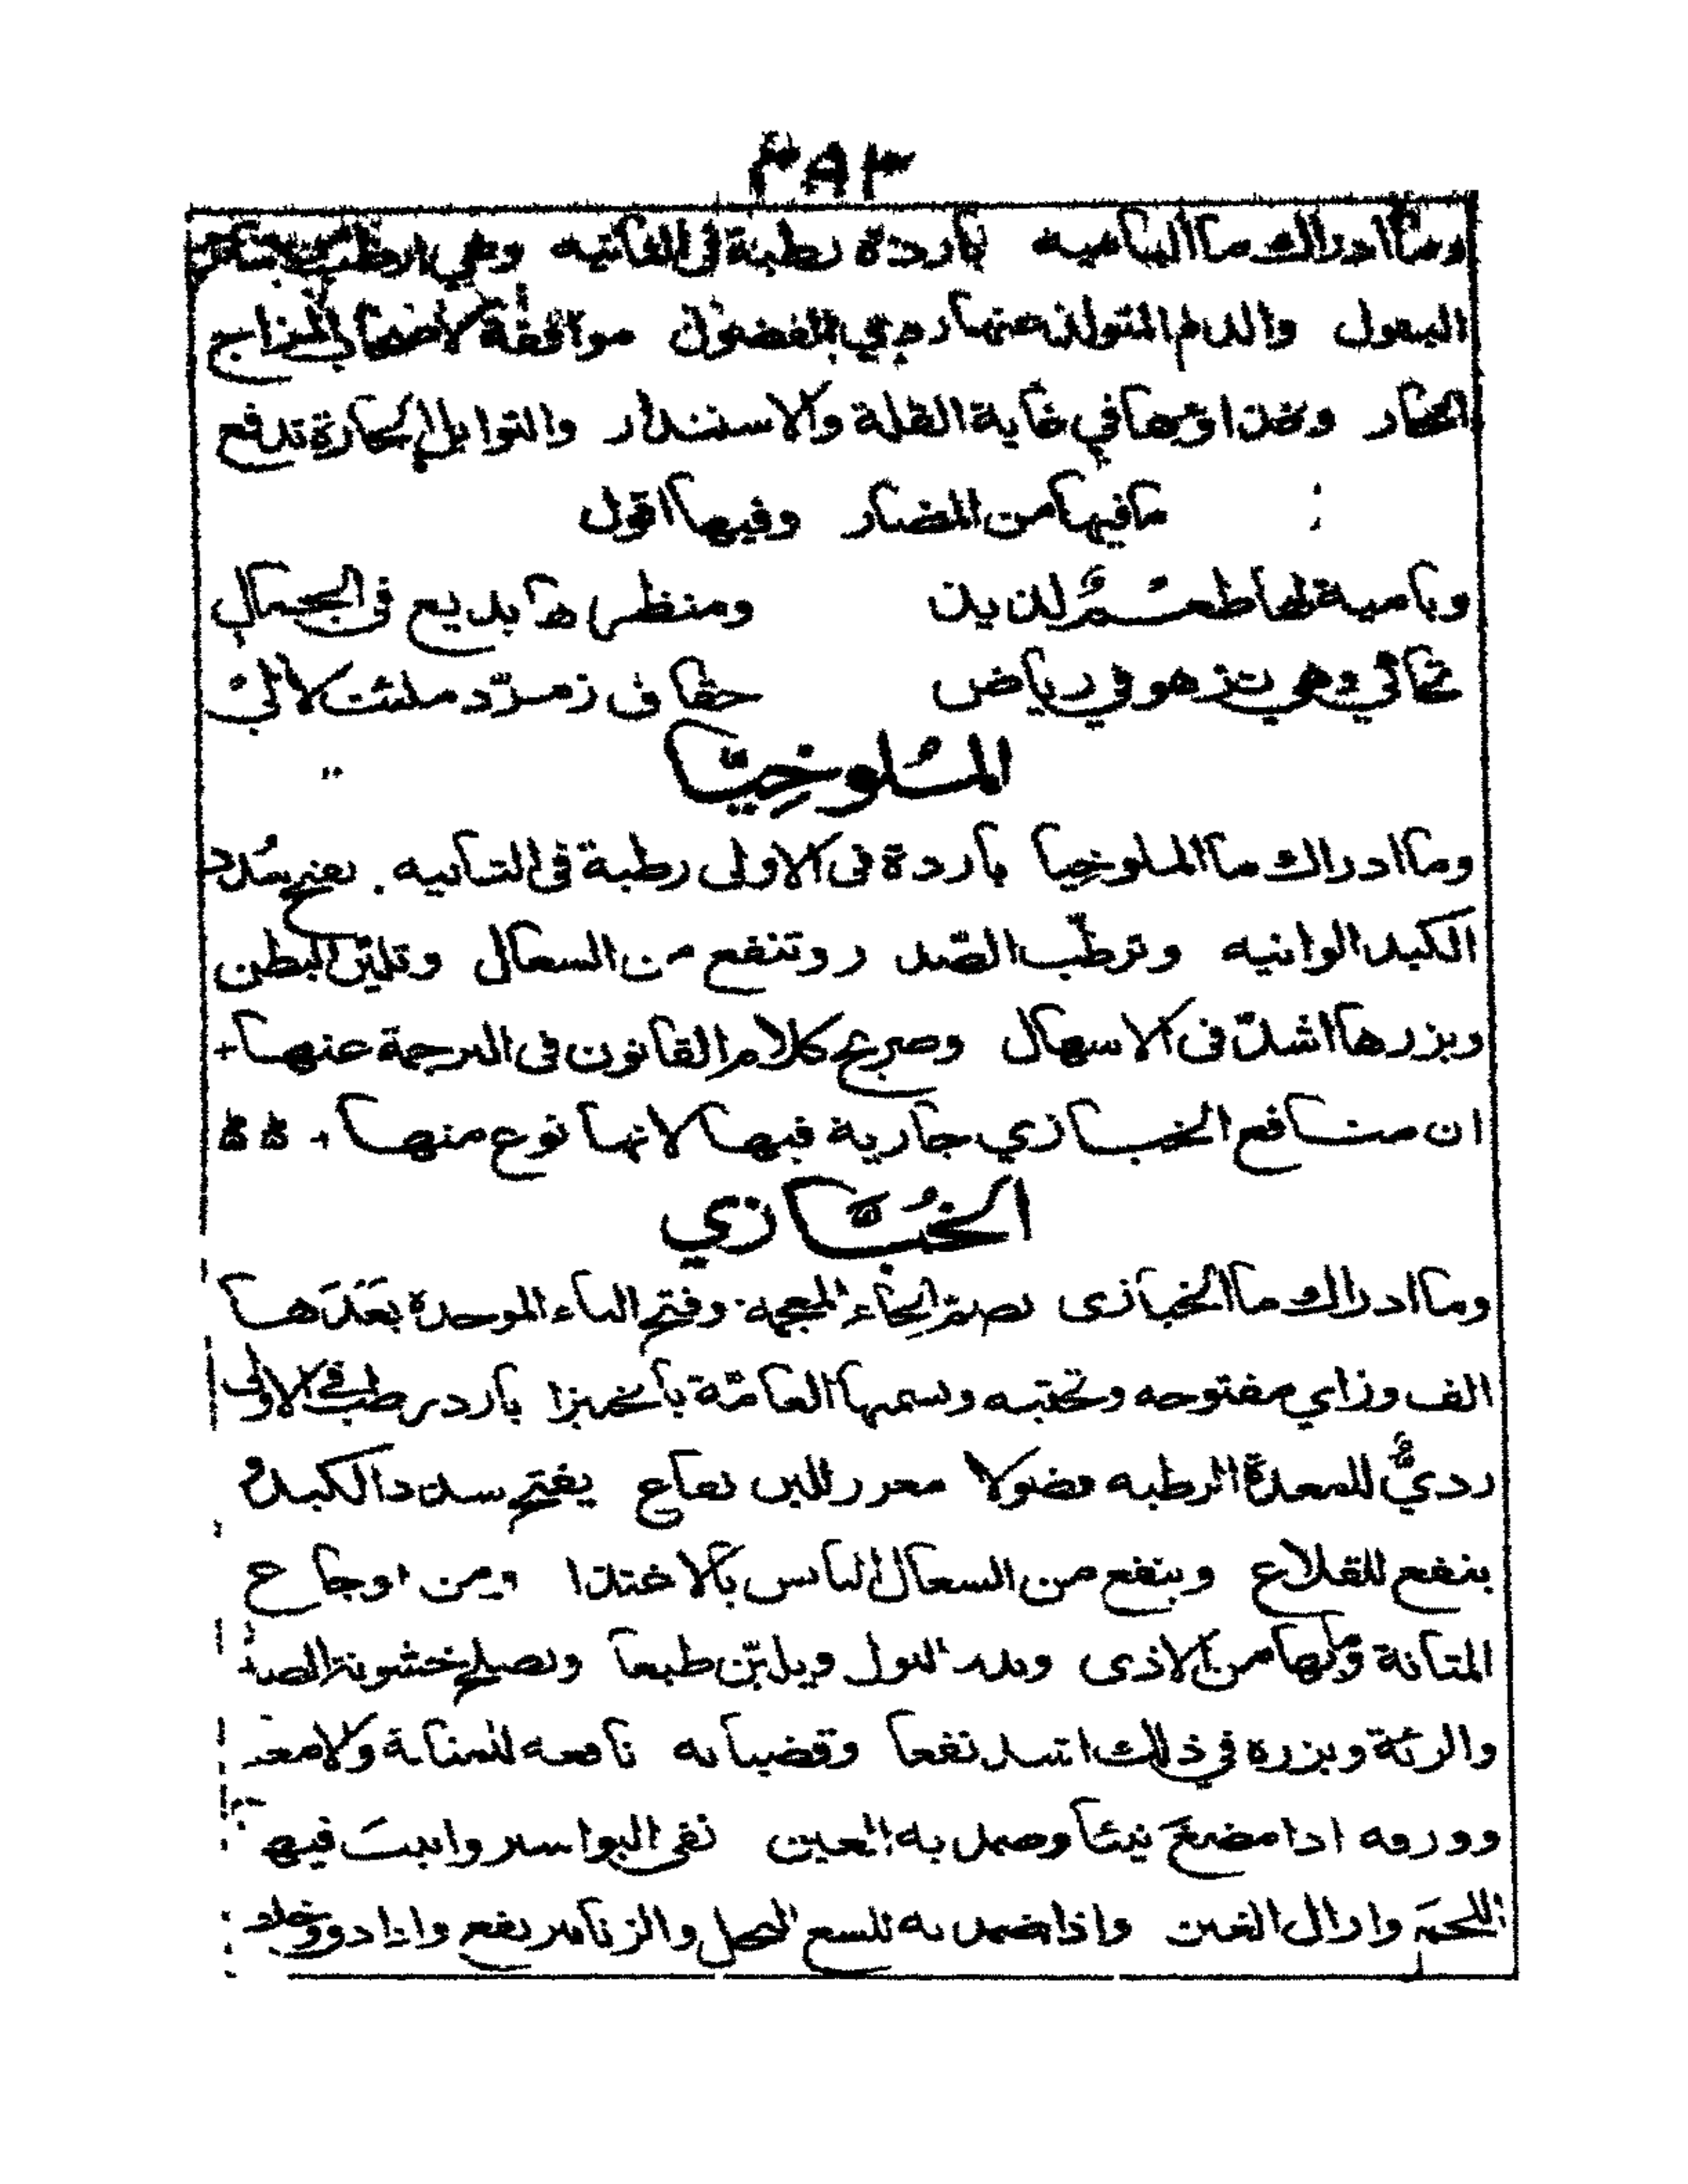 ٣٨٣
وما ادراك ما الباميه باردة رطبة فى الثانيه وهي ارطب من سائر
البقول والدم المتولد عنها ردي للفضول موافقة لاصحاب المزاج
الحار وغذاؤها في غاية القلة والاستنذار والتوابل الحارة تدفع
ما فيها من المضار وفيها اقول
وبامية لها طعم لذيذ ومنظرها بديع فى الجمال
تحاكي وهي تزهو في رياض حقاق زمرّد ملئت لآلي
الملُوخِيّا
وما ادراك ما الملوخِيا باردة فى الاولى رطبة فى الثانيه . تفتح سُدد
الكبد الوانيه وترطّب الصّدر وتنفع من السعال وتليّن البطن
وبزرها اشدّ فى الاسهال وصريح كلام القانون فى الترجمة عنها
ان منافع الخبازي جارية فيها لانها نوع منها
الخُبَّازي
وما ادراك ما الخبازى بضم الخاء المعجمه وفتح الباء الموحدة بَعْدَها
الف وزاي مفتوحه وتحتيه وسميها العامّة بالخبيزا بارد رطب في الاولى
رديٌّ للمعدة الرطبه فضولا مغزر للبن نفاع يفتح سدد الكبد و
ينفع للقلاع وينفع من السعال اليابس بالاغتذا ومن اوجاع
المثانة والها من الاذى ويدر البول ويليّن طبعا ويصلح خشونة الصد
والرئة وبزره في ذلك اشد نفعا وقضبانه نافعه للمثانة ولامعـ
وورقه اذا مضغ نيئا وضمد به العين نقى البواسير وانبت فيها
اللحم وازال الغين واذا ضمد به للسع النحل والزنابير نفع واذا دق وخلط